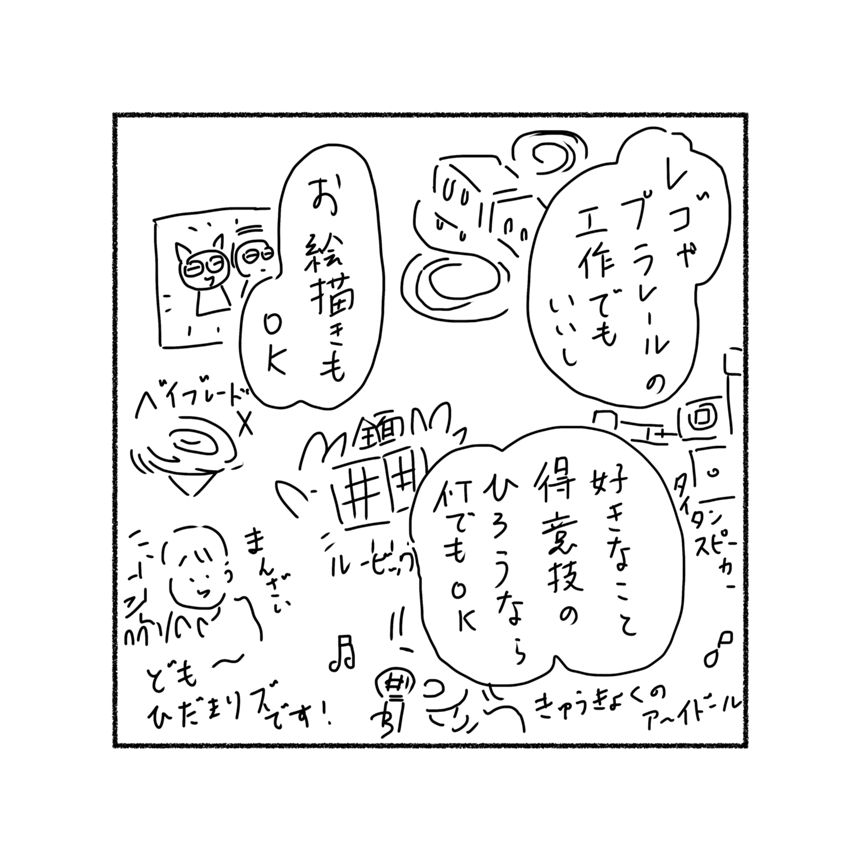 レゴや
プラレールの
工作でも
いいし
お絵描きも
OK
ベイブレード
X
全面
ルービック
タイタン
スピーカー
好きなこと
得意技の
ひろうなら
何でもOK
まんざい
ども〜
ひだまりズ
です!
きゅうきょくの
ア〜イドール